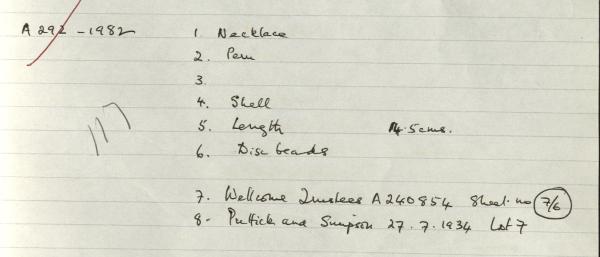 A 292 - 1982 1. Necklace
2. Peru
3.
4. Shell
117
5. Length 14.5 cms.
6. Disc beads
7. Wellcome Trustees A 240854 Sheet. no 7/6
8. Puttick and Simpson 27.7.1934 Lot 7